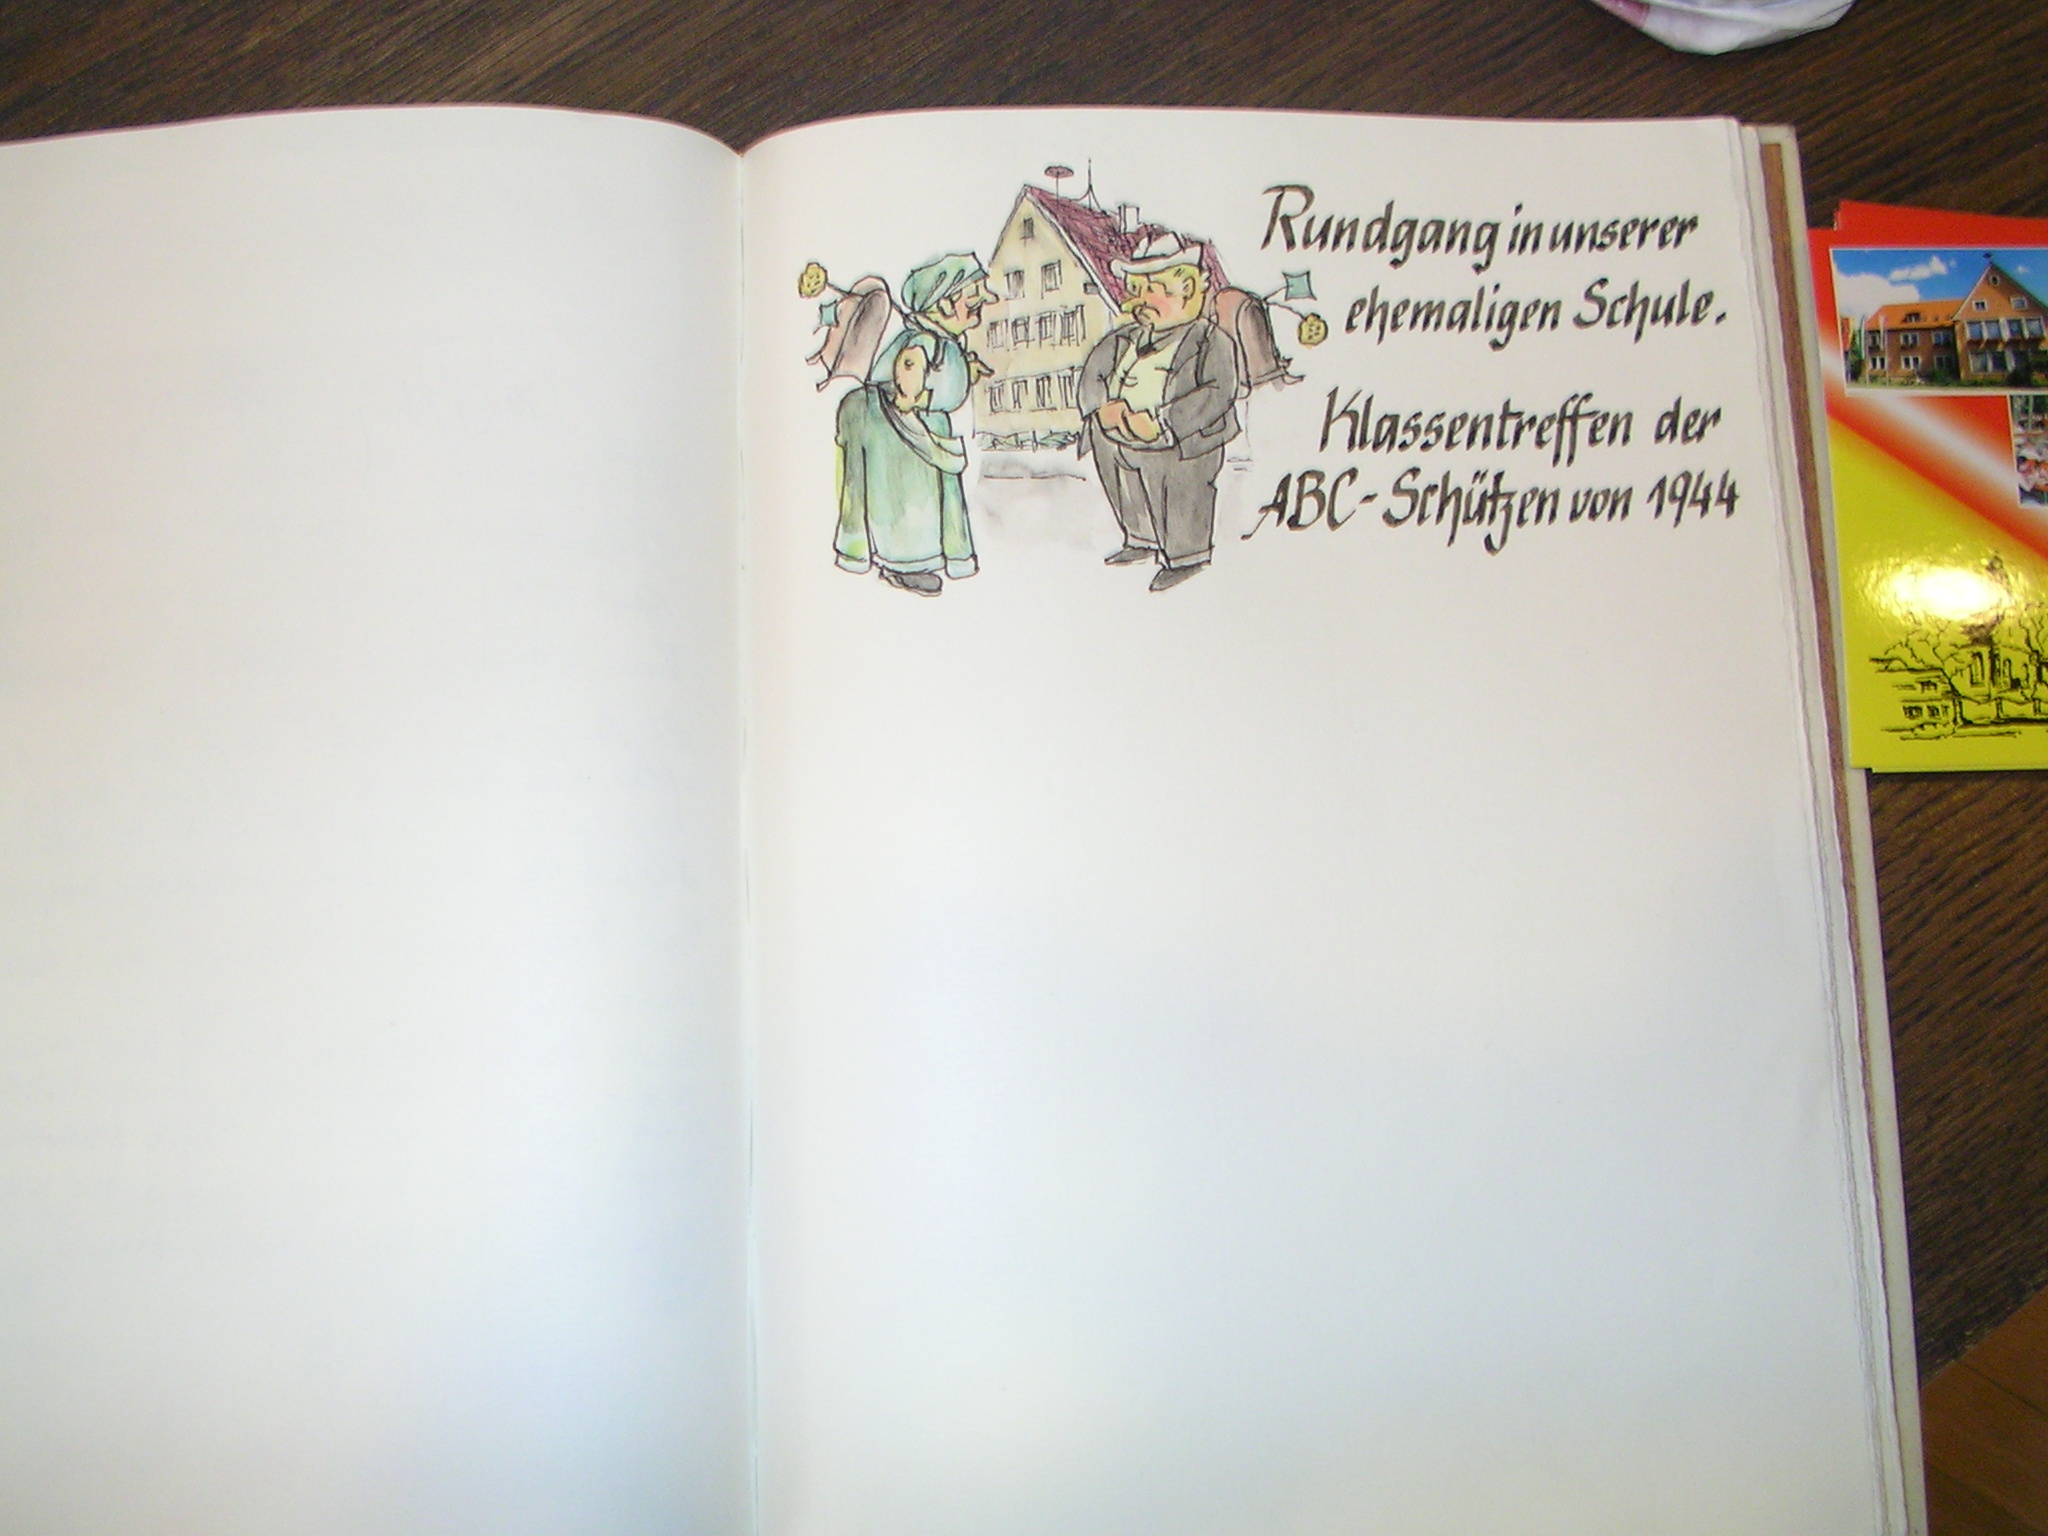 Rundgang in unserer
ehemaligen Schule.
Klassentreffen der
ABC-Schützen von 1944